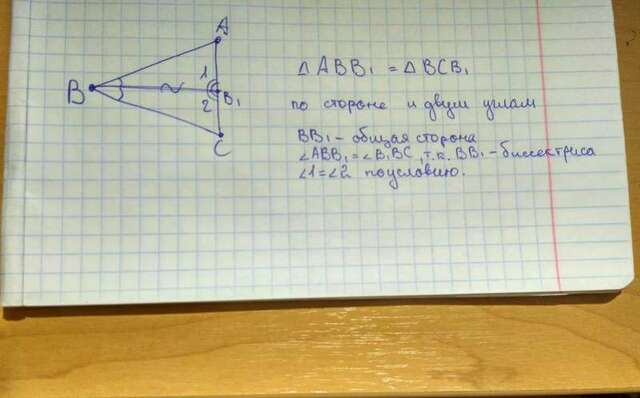 A
B
1
2
B₁
C
△ABB₁ = △BCB₁
по стороне и двум углам
BB₁ - общая сторона
∠ABB₁ = ∠B₁BC, т.к. BB₁ - биссектриса
∠1 = ∠2 по условию.